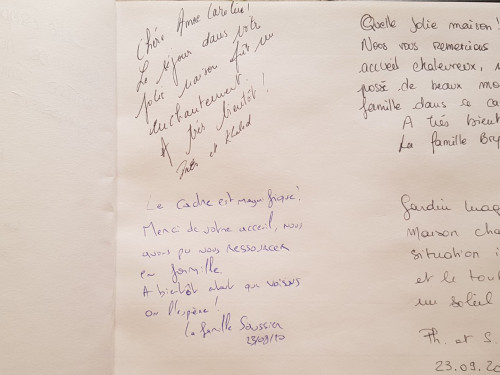 Chère Anne Caroline!
Le séjour dans votre
jolie maison fût un
enchantement.
A très bientôt!
et Khaled
Le cadre est magnifique!
Merci de votre acceuil, nous
avons pu nous ressourcer
en famille.
A bientôt
on l'espère!
La famille Saussier
23/09/20
Quelle jolie maison!
Nous vous remercions
accueil chaleureux,
passé de beaux mo
famille dans ce ca
A très bient
La famille
Jardin mag
Maison cha
situation i
et le tout
un soleil
Th. et S.
23.09.20